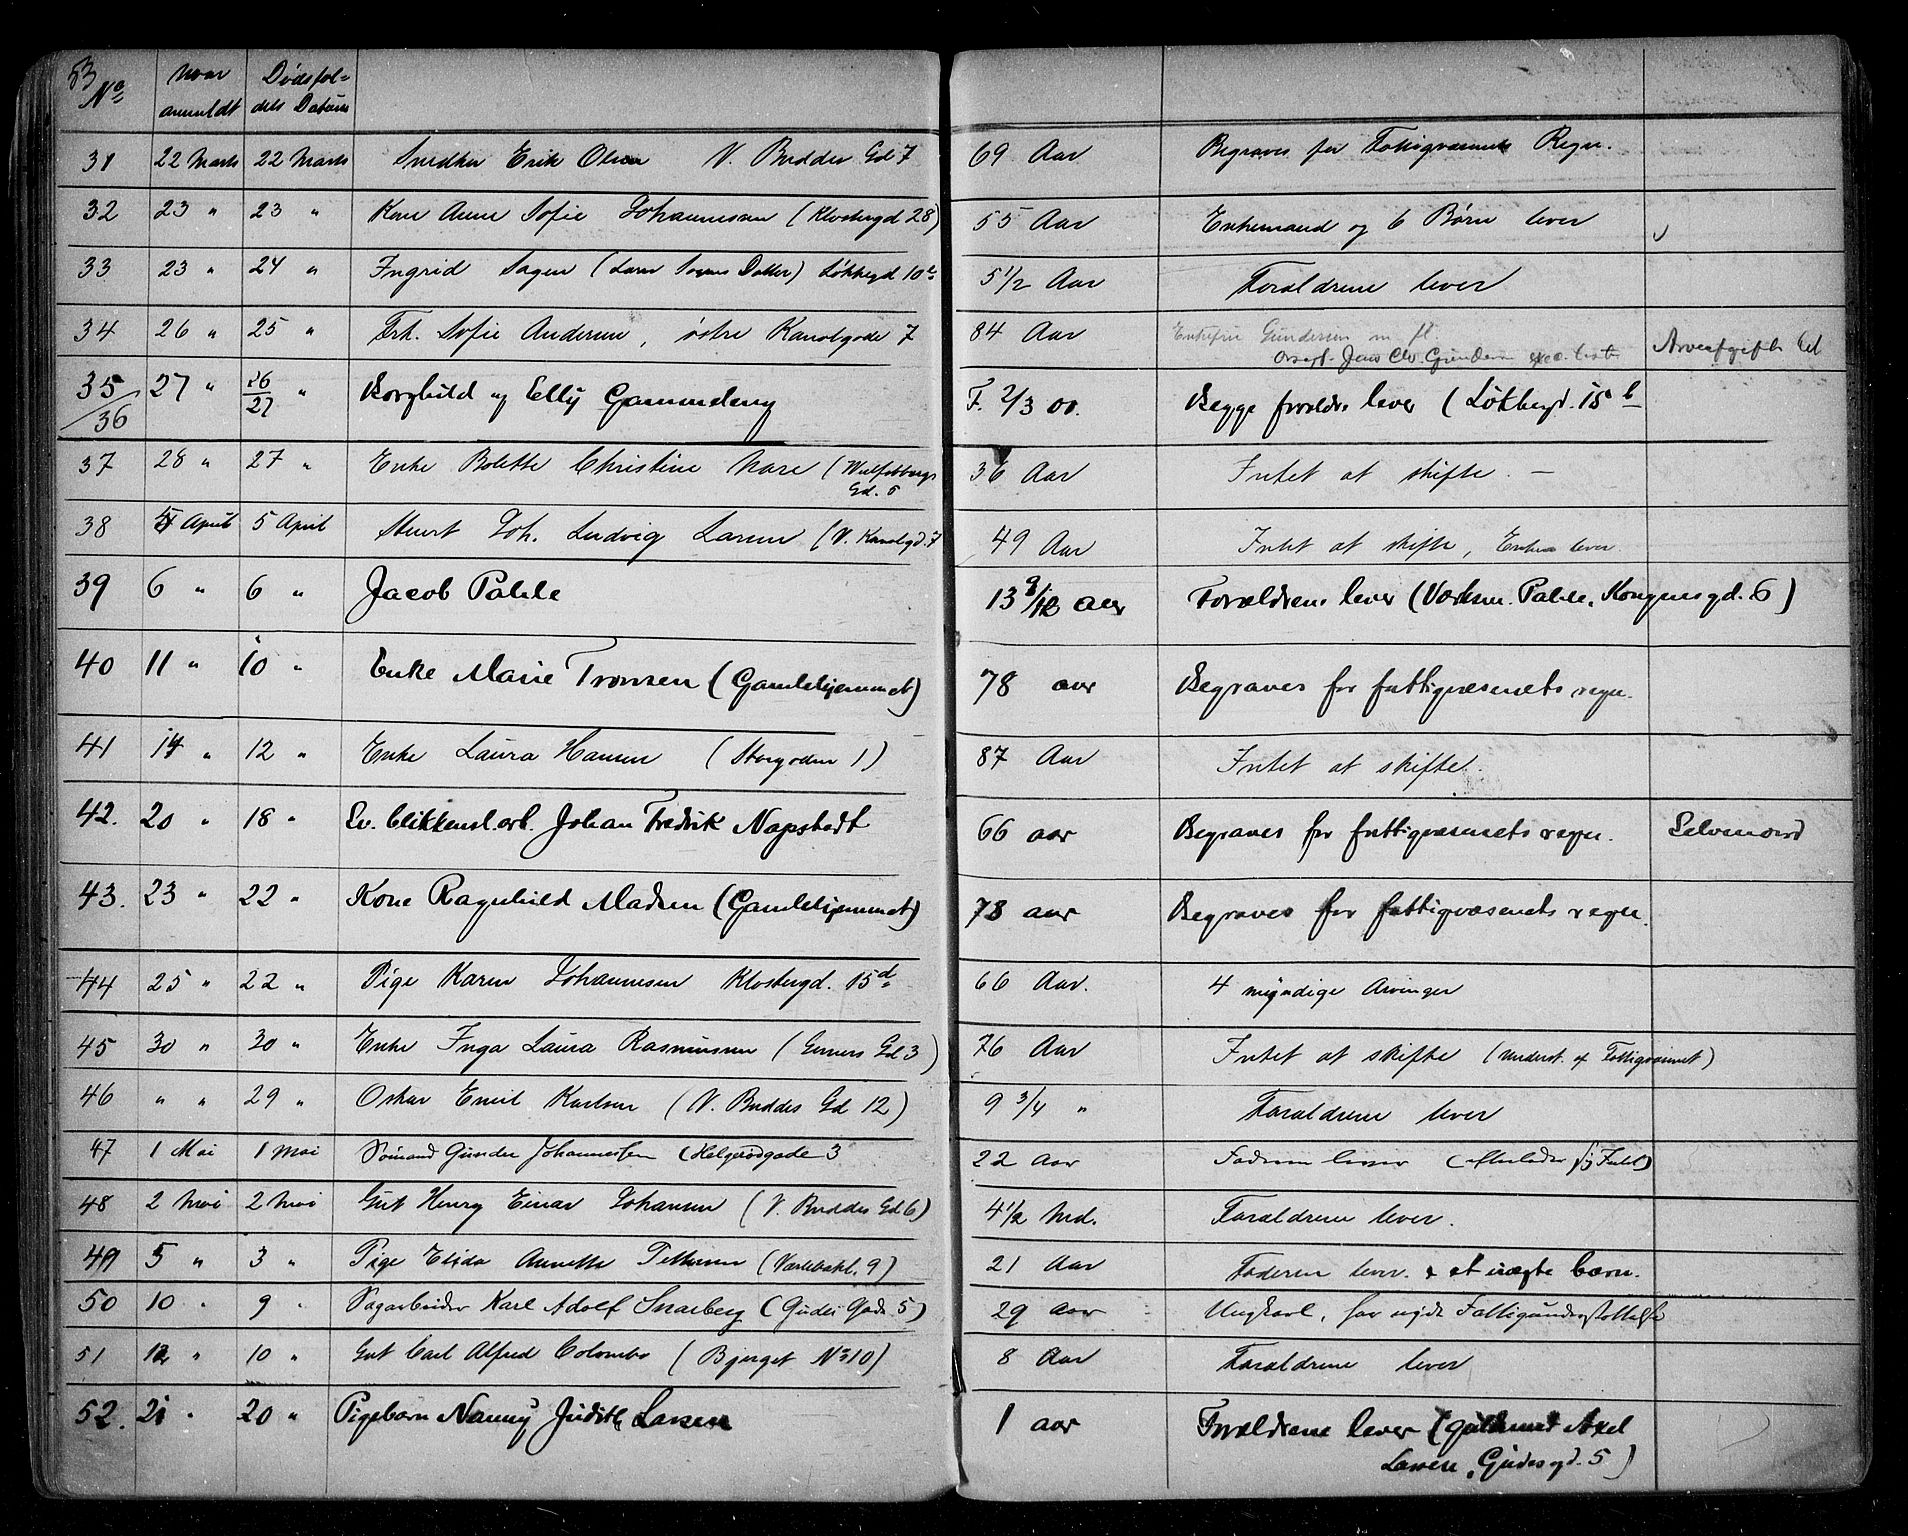 No
Naar anmeldt
Dødsfal-
dets Datum
31 22 Marts 22 Marts Snedker Erik Olsen V. Buddes Gd 7 69 Aar Begraves for Fattigvæsenets Regn.
32 23 " 23 " Kone Anne Sofie Johannesen (Klostergd 28) 55 Aar Enkemand og 6 Børn lever
33 23 " 24 " Ingrid Sagen ( Datter) Løkkegd 10 5 1/2 Aar Forældrene lever
34 26 " 25 " Frk. Sofie Andersen, østre Kanalgade 7 84 Aar Enkefru Gundersen m. fl. Arveafgift bet
Jens Chr. Gundersen
35/36 27 " 26/27 " Borghild og Elly Gammeleng F. 2/3 00. Begge forældre lever (Løkkegd. 15 b
37 28 " 27 " Enke Bolette Christine Nare (Wulfsbergs
Gd. 5
36 Aar Intet at skifte. —
38 5 April 5 April Joh. Ludvig Larsen (V. Kanalgd. 7 49 Aar Intet at skifte, Enken lever
39 6 " 6 " Jacob Pahle 13 9/12 aar Forældrene lever (Værksm. Pahle, Kongensgd. 6)
40 11 " 10 " Enke Marie Tronsen (Gamlehjemmet) 78 aar Begraves for fattigvæsenets regn.
41 14 " 12 " Enke Laura Hansen (Storgaden 1) 87 Aar Intet at skifte.
42. 20 " 18 " Ev. blikkensl.arb. Johan Fredrik Napstadt 66 aar Begraves for fattigvæsenets regn. Selvmord
43. 23 " 22 " Kone Ragnhild Madsen (Gamlehjemmet) 78 aar Begraves for fattigvæsenets regn.
44 25 " 22 " Pige Karen Johannesen Klostergd. 15 d 66 Aar. 4 myndige Arvinger
45 30 " 30 " Enke Inga Laura Rasmussen (Gerners Gd 3) 76 Aar Intet at skifte (underst. af Fattigvæsnet)
46 " " 29 " Oskar Emil Karlsen (V. Buddes Gd 12) 9 3/4 " Forældrene lever
47 1 Mai 1 Mai Sømand Gunder Johannessen (Helgerødgade 3 22 Aar Faderen lever
48 2 Mai 2 Mai Gut Henry Einar Johansen (V. Buddes Gd 6) 4 1/2 Md. Forældrene lever.
49 5 " 3 " Pige Elida Annette Pettersen (Vårlebakk. 9) 21 Aar Faderen lever. & et uægte barn.
50 10 " 9 " Sagarbeider Karl Adolf Snarberg (Gudes Gade. 5) 29 aar Ungkarl, har nydt Fattigunderstøttelse
51 12 " 10 " Gut Carl Alfred Colombo (Bjerget No 10) 8 Aar Forældrene lever
52. 21 " 20 " Pigebarn Nanny Judith Larsen 1 aar Forældrene lever (guldsmed Axel
Larsen, Gudesgd. 5)